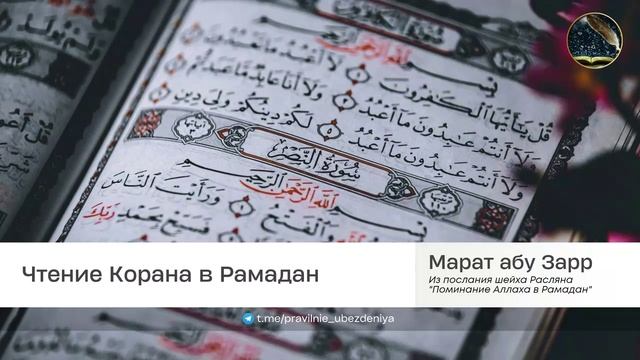 قُلْ يَٰٓأَيُّهَا ٱلْكَٰفِرُونَ ۝ لَآ أَعْبُدُ مَا تَعْبُدُونَ
وَلَآ أَنتُمْ عَٰبِدُونَ مَآ أَعْبُدُ ۝ وَلَآ أَنَا۠ عَابِدٌ مَّا عَبَدتُّمْ
وَلَآ أَنتُمْ عَٰبِدُونَ مَآ أَعْبُدُ ۝ لَكُمْ دِينُكُمْ وَلِىَ دِينِ
سُورَةُ النَّصْرِ
بِسْمِ ٱللَّهِ ٱلرَّحْمَٰنِ ٱلرَّحِيمِ
وَٱلْفَتْحُ ۝ وَرَأَيْتَ ٱلنَّاسَ
فَسَبِّحْ بِحَمْدِ رَبِّكَ
Чтение Корана в Рамадан
Марат абу Зарр
Из послания шейха Расляна
"Поминание Аллаха в Рамадан"
t.me/pravilnie_ubezdeniya